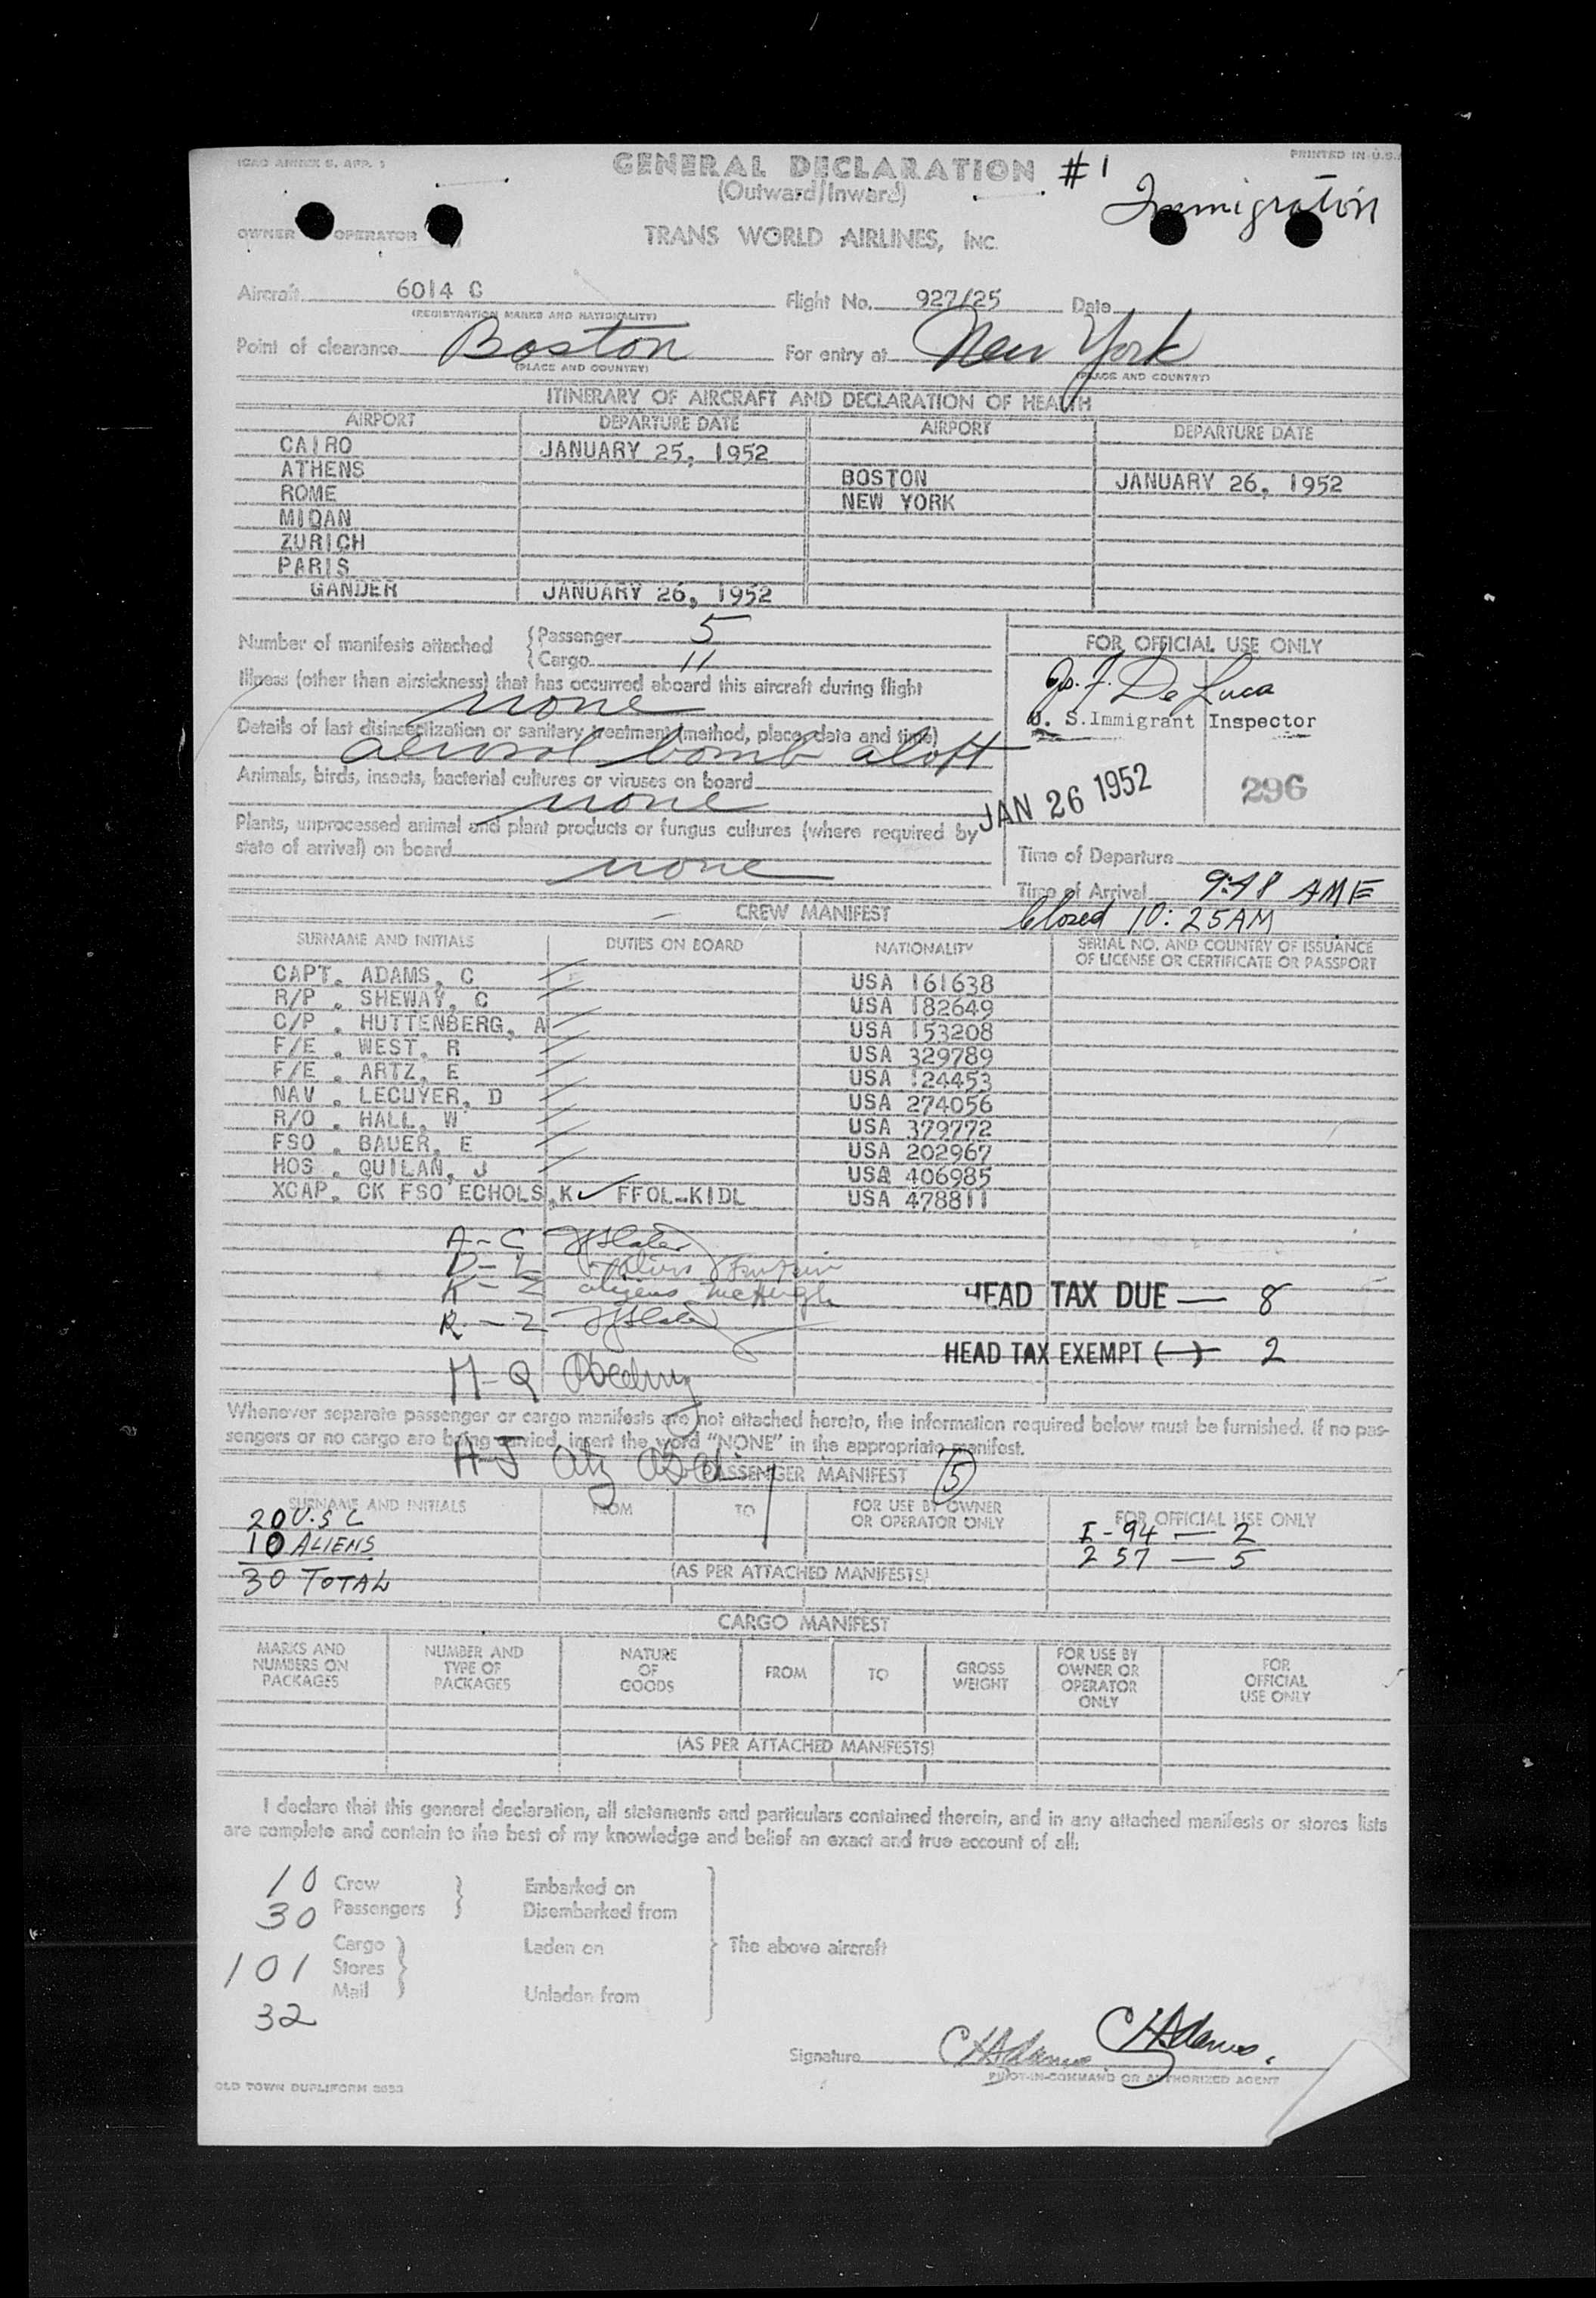 ICAO ANNEX 9, APP. 1
PRINTED IN U.S.A
GENERAL DECLARATION #1
(Outward/Inward)
Immigration
OWNER OPERATOR
TRANS WORLD AIRLINES, INC.
Aircraft 6014 C Flight No. 927/25 Date
(REGISTRATION MARKS AND NATIONALITY)
Point of clearance Boston For entry at New York
(PLACE AND COUNTRY) (PLACE AND COUNTRY)
ITINERARY OF AIRCRAFT AND DECLARATION OF HEALTH
AIRPORT DEPARTURE DATE AIRPORT DEPARTURE DATE
CAIRO JANUARY 25, 1952
ATHENS BOSTON JANUARY 26, 1952
ROME NEW YORK
MIDAN
ZURICH
PARIS
GANDER JANUARY 26, 1952
Number of manifests attached { Passenger 5
{ Cargo 11
FOR OFFICIAL USE ONLY
Illness (other than airsickness) that has occurred aboard this aircraft during flight
none
De Luca
U. S. Immigrant Inspector
Details of last disinsectization or sanitary treatment (method, place, date and time)
aerosol bomb aloft
Animals, birds, insects, bacterial cultures or viruses on board
none
JAN 26 1952 296
Plants, unprocessed animal and plant products or fungus cultures (where required by
state of arrival) on board
none
Time of Departure
Time of Arrival 9:48 AME
Closed 10:25AM
CREW MANIFEST
SURNAME AND INITIALS DUTIES ON BOARD NATIONALITY SERIAL NO. AND COUNTRY OF ISSUANCE
OF LICENSE OR CERTIFICATE OR PASSPORT
CAPT. ADAMS, C USA 161638
R/P . SHEWAY, C USA 182649
C/P . HUTTENBERG, A USA 153208
F/E . WEST, R USA 329789
F/E . ARTZ, E USA 124453
NAV . LECUYER, D USA 274056
R/O . HALL, W USA 379772
FSO . BAUER, E USA 202967
HOS . QUILAN, J USA 406985
XCAP. CK FSO ECHOLS,K ✓ FFOL-KIDL USA 478811
A - C
D - L
K - Z
HEAD TAX DUE — 8
R - Z
HEAD TAX EXEMPT (—) 2
M - Q
Whenever separate passenger or cargo manifests are not attached hereto, the information required below must be furnished. If no pas-
sengers or no cargo are being carried, insert the word "NONE" in the appropriate manifest.
H-J
PASSENGER MANIFEST 5
SURNAME AND INITIALS FROM TO FOR USE BY OWNER
OR OPERATOR ONLY FOR OFFICIAL USE ONLY
20 U.S C I-94 — 2
10 ALIENS 257 — 5
30 TOTAL (AS PER ATTACHED MANIFESTS)
CARGO MANIFEST
MARKS AND
NUMBERS ON
PACKAGES
NUMBER AND
TYPE OF
PACKAGES
NATURE
OF
GOODS
FROM
TO
GROSS
WEIGHT
FOR USE BY
OWNER OR
OPERATOR
ONLY
FOR
OFFICIAL
USE ONLY
(AS PER ATTACHED MANIFESTS)
I declare that this general declaration, all statements and particulars contained therein, and in any attached manifests or stores lists
are complete and contain to the best of my knowledge and belief an exact and true account of all:
10 Crew } Embarked on
30 Passengers } Disembarked from
Cargo } Laden on } The above aircraft
101 Stores }
Mail } Unladen from
32
Signature CHAdams CHAdams.
PILOT-IN-COMMAND OR AUTHORIZED AGENT
OLD TOWN DUPLIFORM